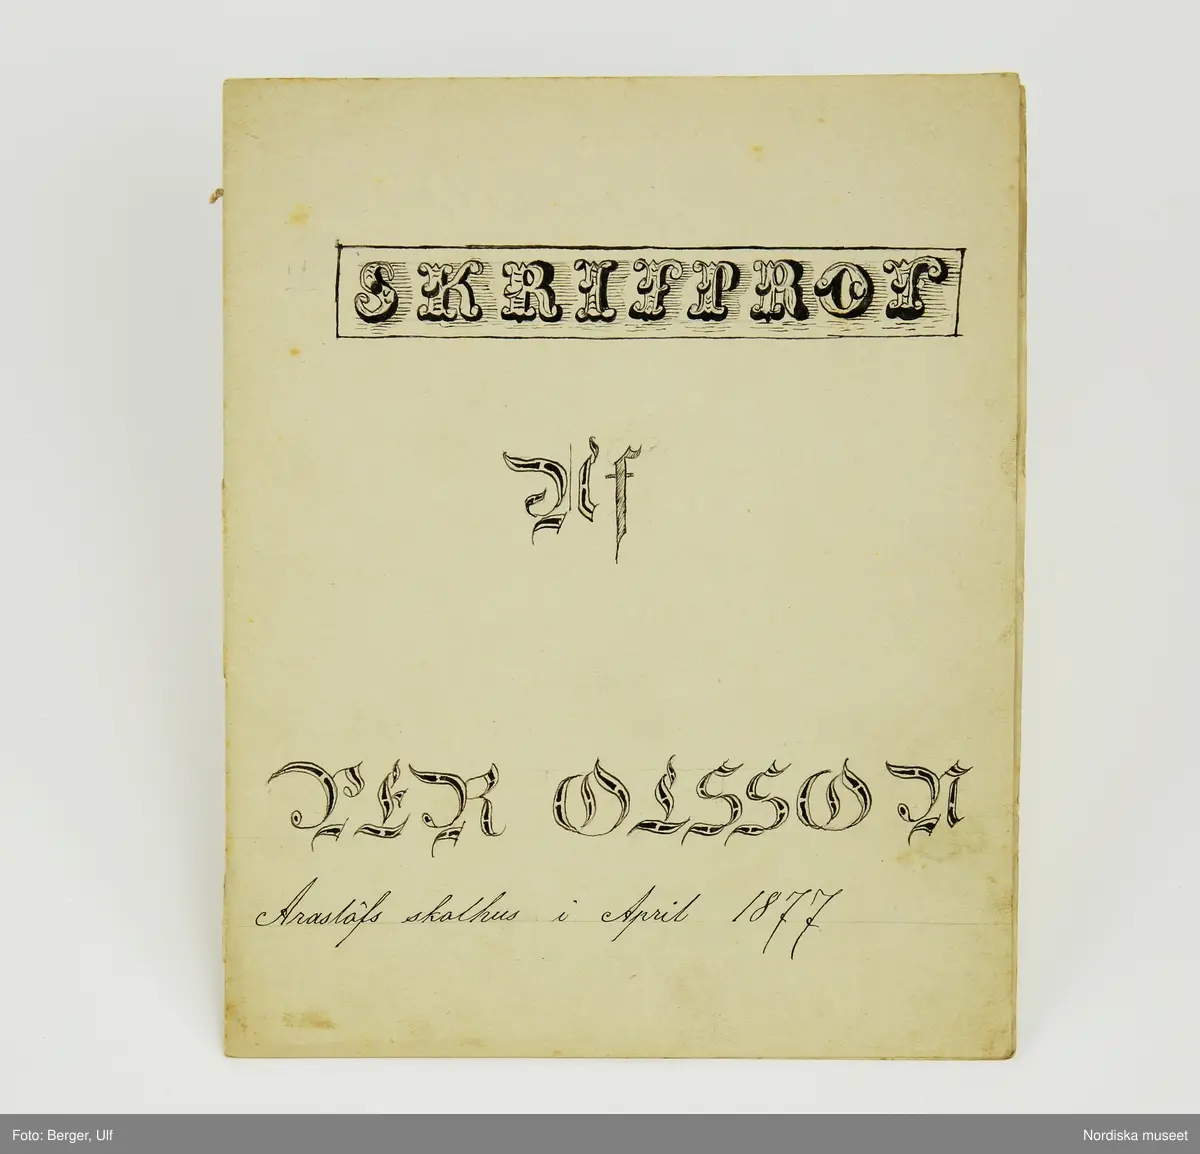 SKRIFPROF
Af
PER OLSSON
Araslöfs skolhus i April 1877
Foto: Berger, Ulf
Nordiska museet